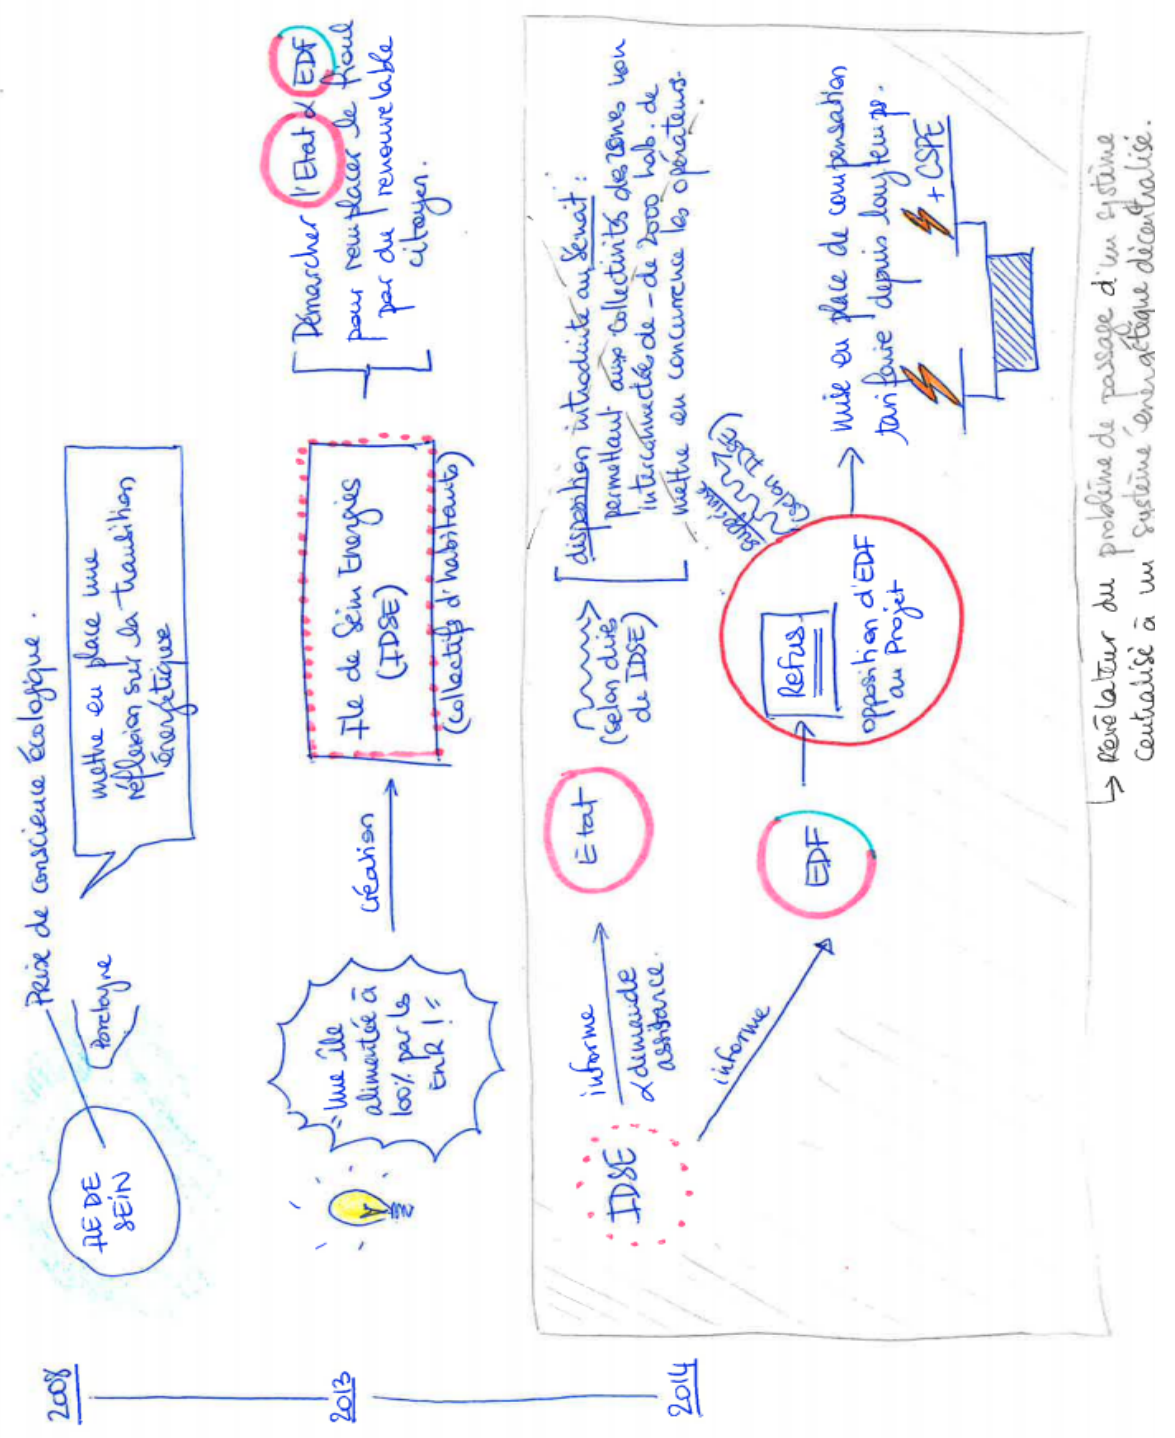 2008
ÎLE DE
SEIN
Prise de conscience écologique.
Bretagne
mettre en place une
réflexion sur la transition
énergétique
2013
"Une île
alimentée à
100% par les
EnR !"
création
Île de Sein Energies
(IDSE)
(collectifs d'habitants)
Démarcher l'Etat & EDF
pour remplacer le fioul
par du renouvelable
citoyen.
2014
IDSE
informe
& demande
assistance.
Etat
(selon dires
de IDSE)
disposition introduite au Sénat :
permettant aux collectivités des zones non
interconnectées de - de 2000 hab. de
mettre en concurrence les opérateurs.
supprimée
(selon IDSE)
informe
EDF
Refus
opposition d'EDF
au Projet
mise en place de compensation
tarifaire depuis longtemps.
+ CSPE
↳ Révélateur du problème de passage d'un système
centralisé à un système énergétique décentralisé.